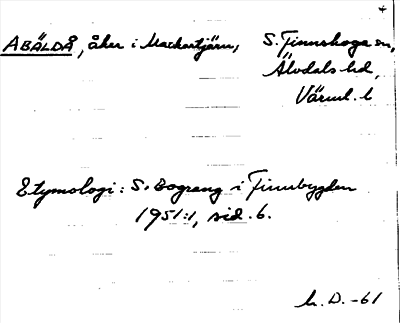 ABÄLDÅ, åker i Mackartjärn, S. Finnskoga sn,
Älvdals hd,
Värml. l
Etymologi: S. Bograng i Finnbygden
1951:1, sid. 6.
h. D. -61